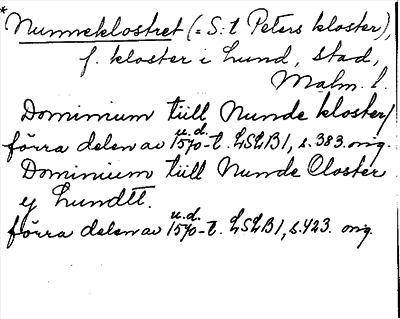 * Nunneklostret (= S:t Peters kloster),
f. kloster i Lund, stad,
Malm. l.
Dominium tiill Nunde kloster/
förra delen av u.d. 1570-t. LSLB1, s. 383. orig.
Dominium tiill Nunde Closter
y Lundtt.
förra delen av u.d. 1570-t. LSLB1, s. 423. orig.